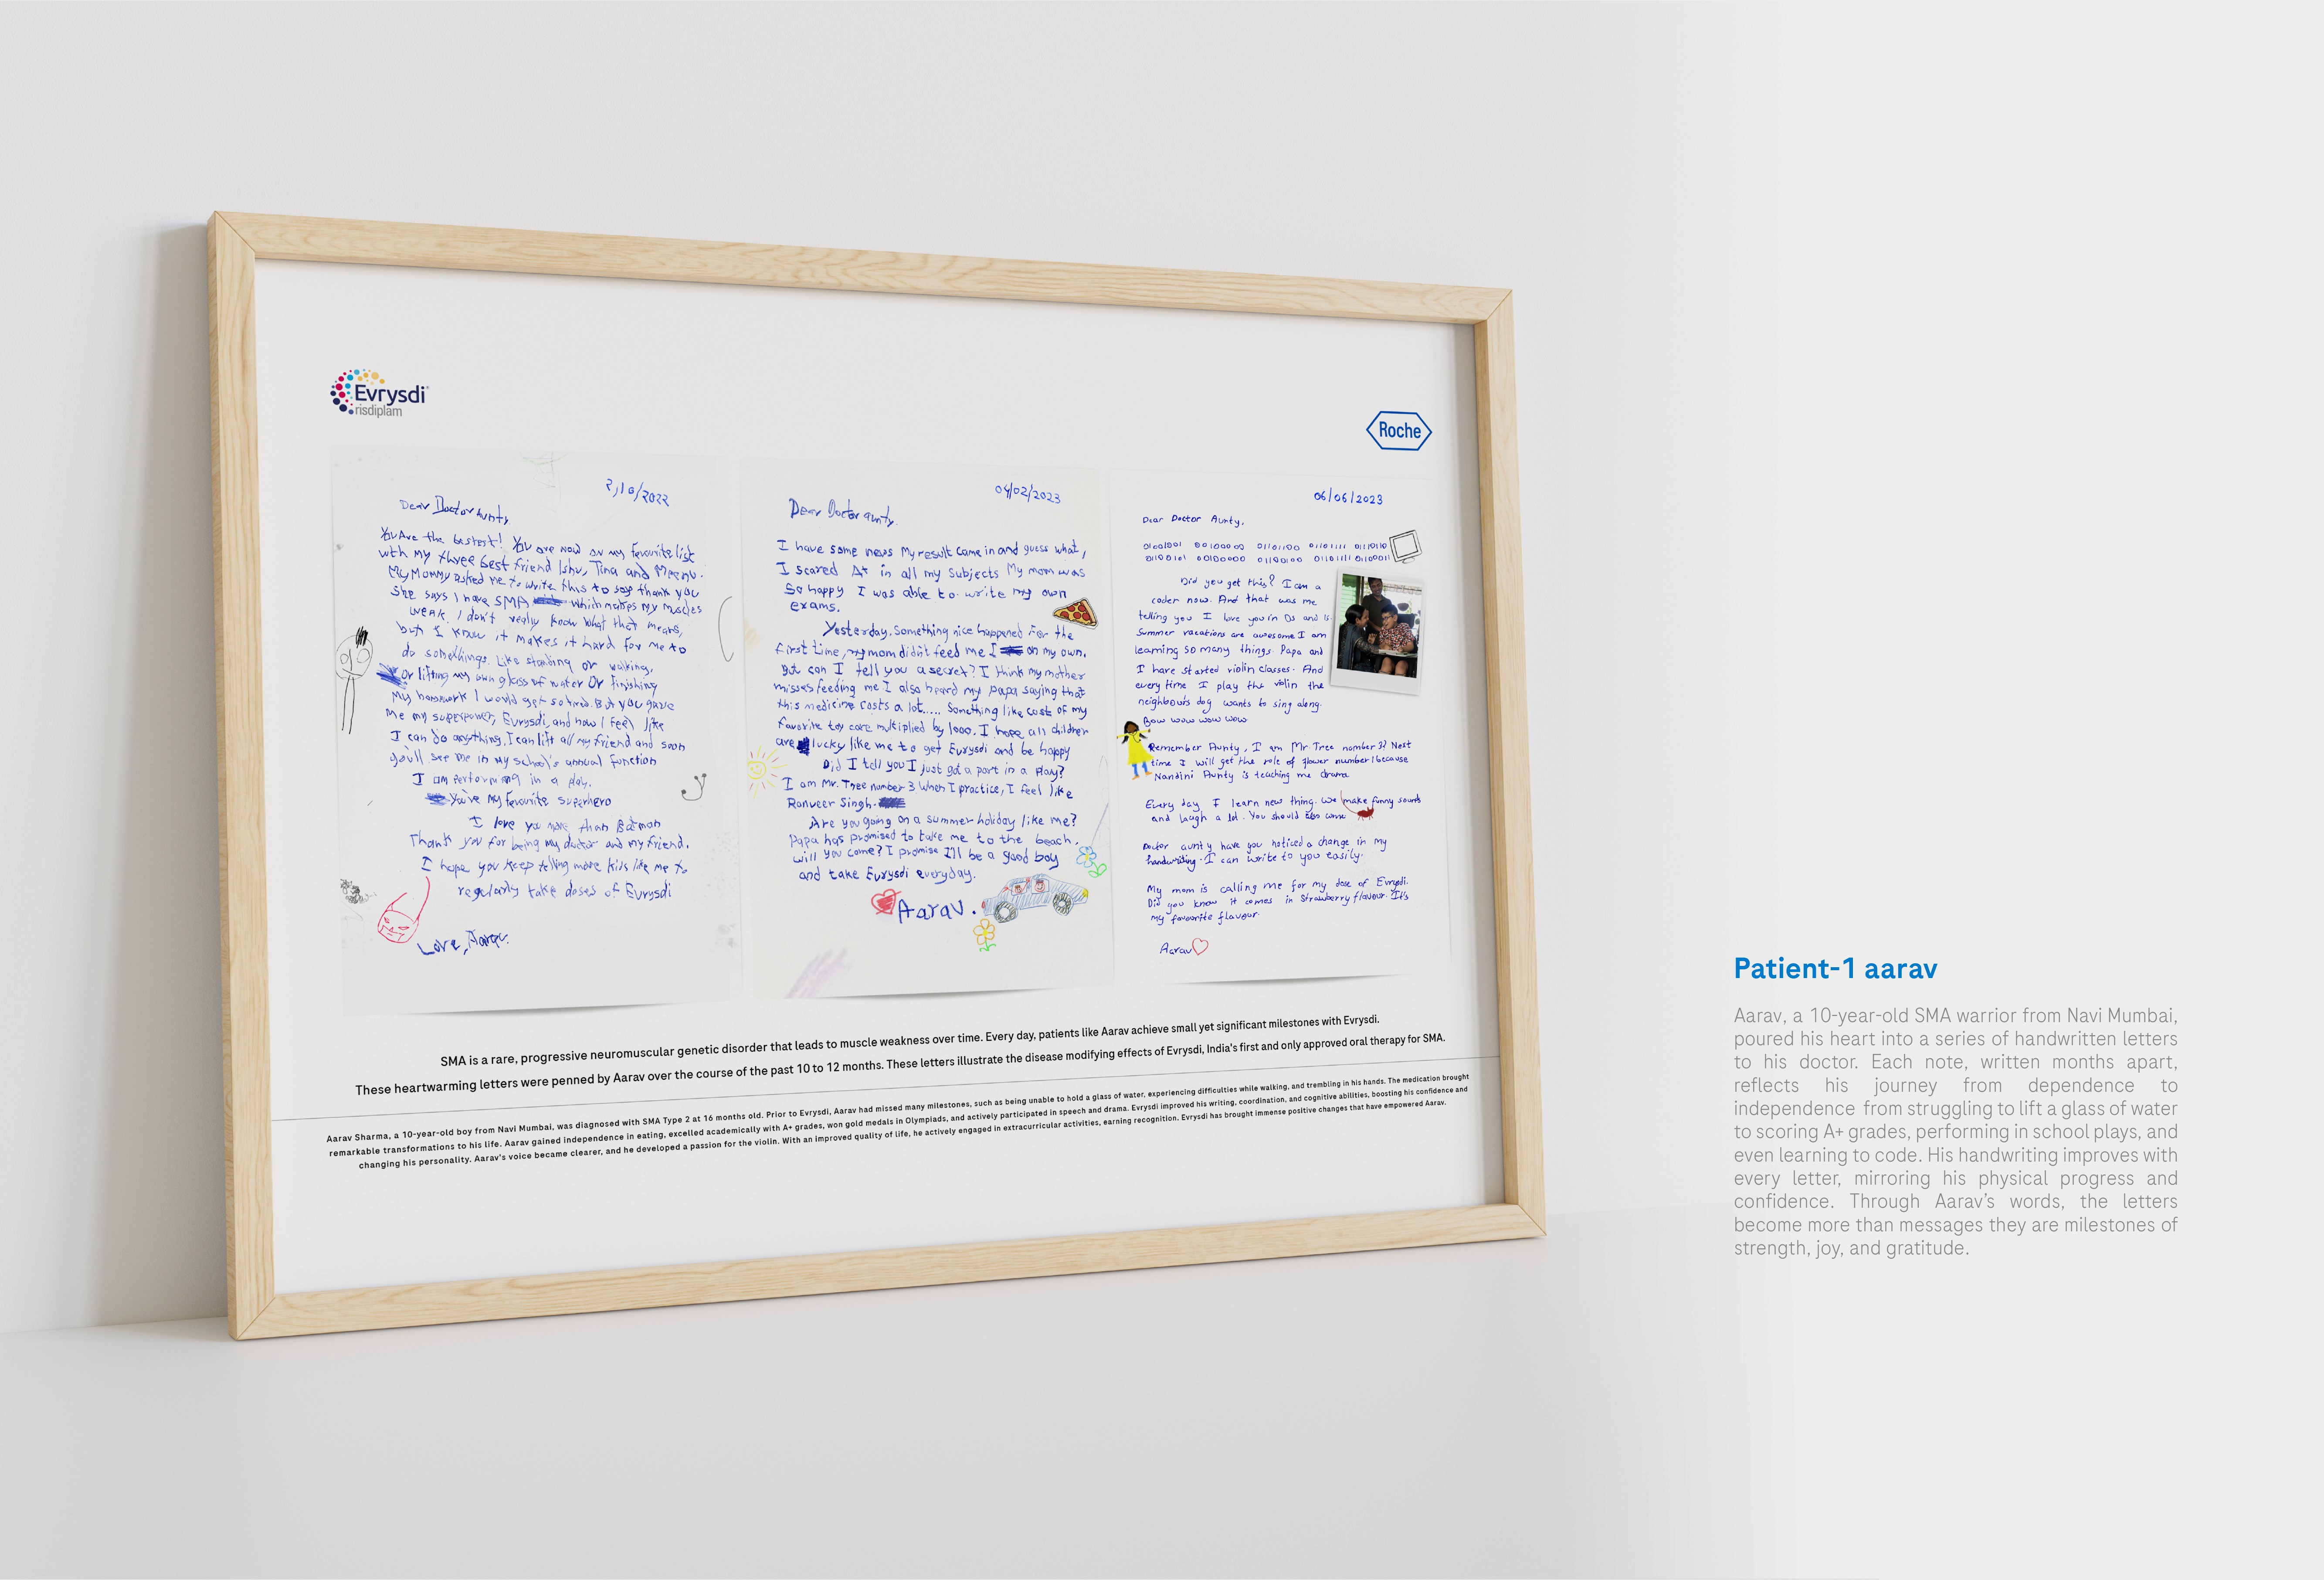 Evrysdi
risdiplam
Roche
2/10/2022
Dear Doctor Aunty
You Are the bestest! You are now on my favourite list
with my three best friend Ishu, Tina and Meenu.
My Mommy asked me to write this to say thank you
She says I have SMA which makes my muscles
weak. I don't really know what that means,
but I know it makes it hard for me to
do somethings. Like standing or walking,
Or lifting my own glass of water Or finishing
My homework I would get so tired. But you gave
me my superpower, Evrysdi, and now I feel like
I can do anything. I can lift all my friend and soon
you'll see me in my school's annual function
I am performing in a play.
You're my favourite superhero
I love you more than Batman
Thank you for being my doctor and my friend.
I hope you keep telling more kids like me to
regularly take doses of Evrysdi
Love, Aarav.
04/02/2023
Dear Doctor aunty.
I have some news My result came in and guess what,
I scared A+ in all my subjects My mom was
So happy I was able to write my own
exams.
Yesterday. Something nice happened For the
first time, my mom didn't feed me I on my own.
But can I tell you a secret? I think my mother
misses feeding me I also heard my papa saying that
this medicine costs a lot..... Something like cost of my
favorite toy care multiplied by 1000. I hope all children
are lucky like me to get Evrysdi and be happy
Did I tell you I just got a part in a Play?
I am Mr. Tree number 3 When I practice, I feel like
Ranveer Singh.
Are you going on a summer holiday like me?
Papa has promised to take me to the beach.
will you come? I promise I'll be a good boy
and take Evrysdi everyday.
Aarav.
06/06/2023
Dear Doctor Aunty,
01001001 00100000 01101100 01101111 01110110
01100101 00100000 01100100 01101111 0110001
Did you get this? I am a
coder now. And that was me
telling you I love you in 0s and 1s.
Summer vacations are awesome I am
learning so many things. Papa and
I have started violin classes. And
every time I play the violin the
neighbours dog wants to sing along.
Bow wow wow wow
Remember Aunty, I am Mr Tree number 3? Next
time I will get the role of flower number 1 because
Nandini Aunty is teaching me drama
Every day I learn new thing. We make funny sounds
and laugh a lot. You should also come
Doctor aunty have you noticed a change in my
handwriting. I can write to you easily.
My mom is calling me for my dose of Evrysdi.
Did you know it comes in Strawberry flavour. It's
my favourite flavour.
Aarav
SMA is a rare, progressive neuromuscular genetic disorder that leads to muscle weakness over time. Every day, patients like Aarav achieve small yet significant milestones with Evrysdi.
These heartwarming letters were penned by Aarav over the course of the past 10 to 12 months. These letters illustrate the disease modifying effects of Evrysdi, India's first and only approved oral therapy for SMA.
Aarav Sharma, a 10-year-old boy from Navi Mumbai, was diagnosed with SMA Type 2 at 16 months old. Prior to Evrysdi, Aarav had missed many milestones, such as being unable to hold a glass of water, experiencing difficulties while walking, and trembling in his hands. The medication brought
remarkable transformations to his life. Aarav gained independence in eating, excelled academically with A+ grades, won gold medals in Olympiads, and actively participated in speech and drama. Evrysdi improved his writing, coordination, and cognitive abilities, boosting his confidence and
changing his personality. Aarav's voice became clearer, and he developed a passion for the violin. With an improved quality of life, he actively engaged in extracurricular activities, earning recognition. Evrysdi has brought immense positive changes that have empowered Aarav.
Patient-1 aarav
Aarav, a 10-year-old SMA warrior from Navi Mumbai,
poured his heart into a series of handwritten letters
to his doctor. Each note, written months apart,
reflects his journey from dependence to
independence from struggling to lift a glass of water
to scoring A+ grades, performing in school plays, and
even learning to code. His handwriting improves with
every letter, mirroring his physical progress and
confidence. Through Aarav's words, the letters
become more than messages they are milestones of
strength, joy, and gratitude.